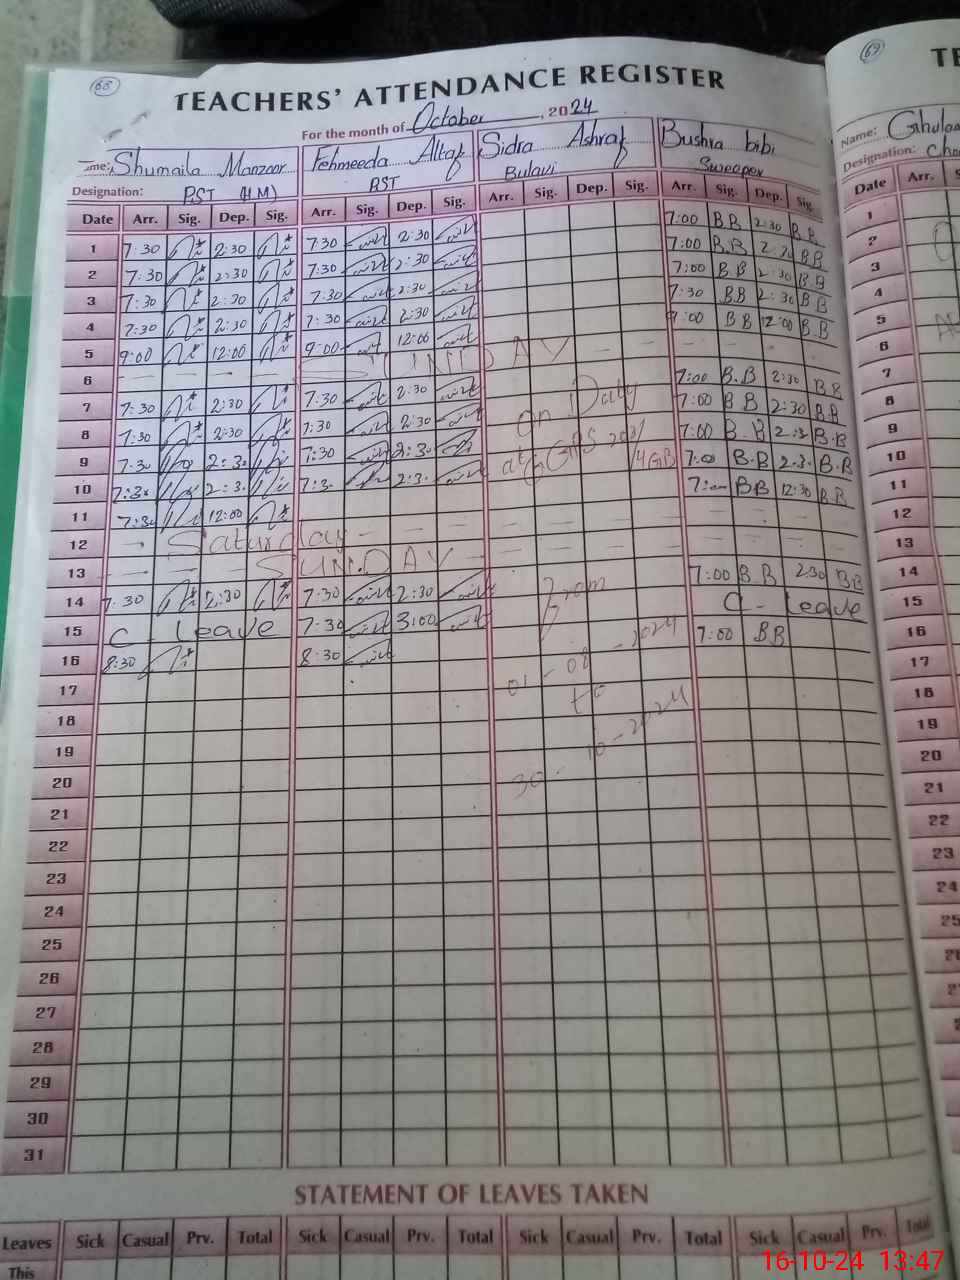 68
TEACHERS' ATTENDANCE REGISTER
For the month of October, 2024
me: Shumaila Manzoor Fehmeeda Altaf Sidra Ashraf Bushra bibi
Designation: PST (H.M) PST Sweeper
Date Arr. Sig. Dep. Sig. Arr. Sig. Dep. Sig. Arr. Sig. Dep. Sig. Arr. Sig. Dep. Sig.
1 7:30 2:30 7:30 2:30 7:00 B.B 2:30 B.B
2 7:30 2:30 7:30 2:30 7:00 B.B BB
3 7:30 2:30 7:30 2:30 7:00 B.B 2:30 B.B
4 7:30 2:30 7:30 2:30 7:30 BB 2:30 BB
5 9:00 12:00 9:00 12:00 9:00 BB 12:00 B.B
6 SUNDAY
7 7:30 2:30 7:30 2:30 7:00 B.B 2:30 BB
8 7:30 2:30 7:30 2:30 On Duty 7:00 BB 2:30 BB
9 7:30 2:3. 7:30 2:3. at GGPS 7:00 B.B 2:3. B.B
10 7:3. 2:3. 7:3. 2:3. 7:00 B.B 2:3. B.B
11 7:3. 12:00 BB 12:30 BB
12 Saturday
13 SUNDAY
14 7:30 2:30 7:30 2:30 From 7:00 B.B 2:30 BB
15 C - Leave 7:30 3:00 01-08-2024 C - Leave
16 8:30 8:30 to 7:00 BB
17
18
19 30-10-2024
20
21
22
23
24
25
26
27
28
29
30
31
STATEMENT OF LEAVES TAKEN
Leaves Sick Casual Prv. Total Sick Casual Prv. Total Sick Casual Prv. Total Sick Casual Prv. Total
This
69
TE
Name: Ghula
Designation: Cho
Date Arr. S
1
2
3
4
5
6
7
8
9
10
11
12
13
14
15
16
17
18
19
20
21
22
23
24
25
16-10-24 13:47